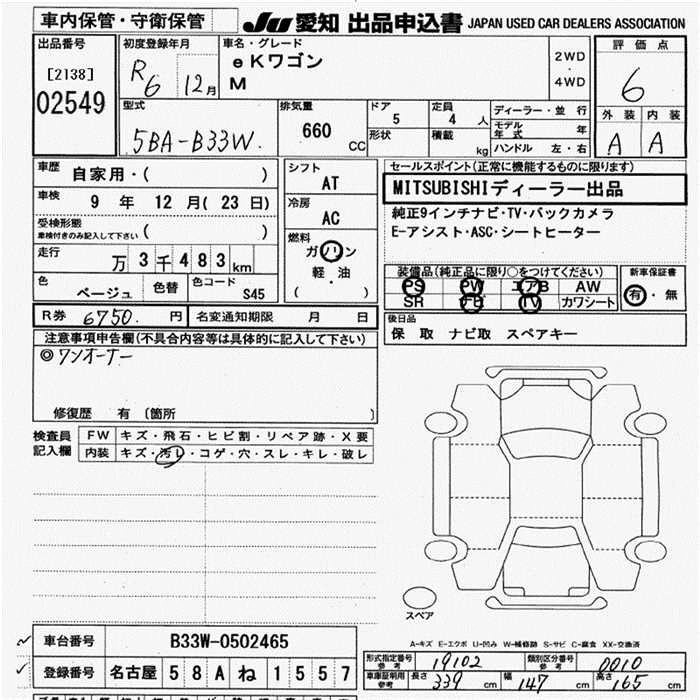 車内保管・守衛保管 JU 愛知 出品申込書 JAPAN USED CAR DEALERS ASSOCIATION
出品番号 [2138] 02549
初度登録年月 R6 12月
車名・グレード eKワゴン M
2WD・4WD
評価点 6
外装 内装
A A
型式 5BA-B33W
排気量 660 CC
ドア 5
形状
定員 4 人
積載 kg
ディーラー・並行
モデル年式 年
ハンドル 左・右
車歴 自家用・( )
車検 9 年 12 月(23日)
受検形態 車検付きのみ記入して下さい ( )
走行 万3千483km
色 ベージュ 色替 色コード S45
シフト AT
冷房 AC
燃料 ガソリン
軽・油
( )
セールスポイント(正常に機能するものに限ります)
MITSUBISHIディーラー出品
純正9インチナビ・TV・バックカメラ
E-アシスト・ASC・シートヒーター
装備品(純正品に限り○をつけてください)
PS PW エアB AW
SR ナビ TV カワシート
新車保証書
有・無
R券 6750. 円 名変通知期限 月 日
後日品
保 取 ナビ取 スペアキー
注意事項申告欄(不具合内容等は具体的に記入して下さい)
◎ワンオーナー
修復歴 有 〔箇所 〕
検査員記入欄
FW キズ・飛石・ヒビ割・リペア跡・X要
内装 キズ・汚レ・コゲ・穴・スレ・キレ・破レ
スペア
A-キズ E-エクボ U-凹み W-補修跡 S-サビ C-腐食 XX-交換済
車台番号 B33W-0502465
登録番号 名古屋 58A ね 1557
形式指定番号 参考 19102 類別区分番号 参考 0010
車庫証明用 参考 長さ 339 cm 幅 147 cm 高さ 165 cm